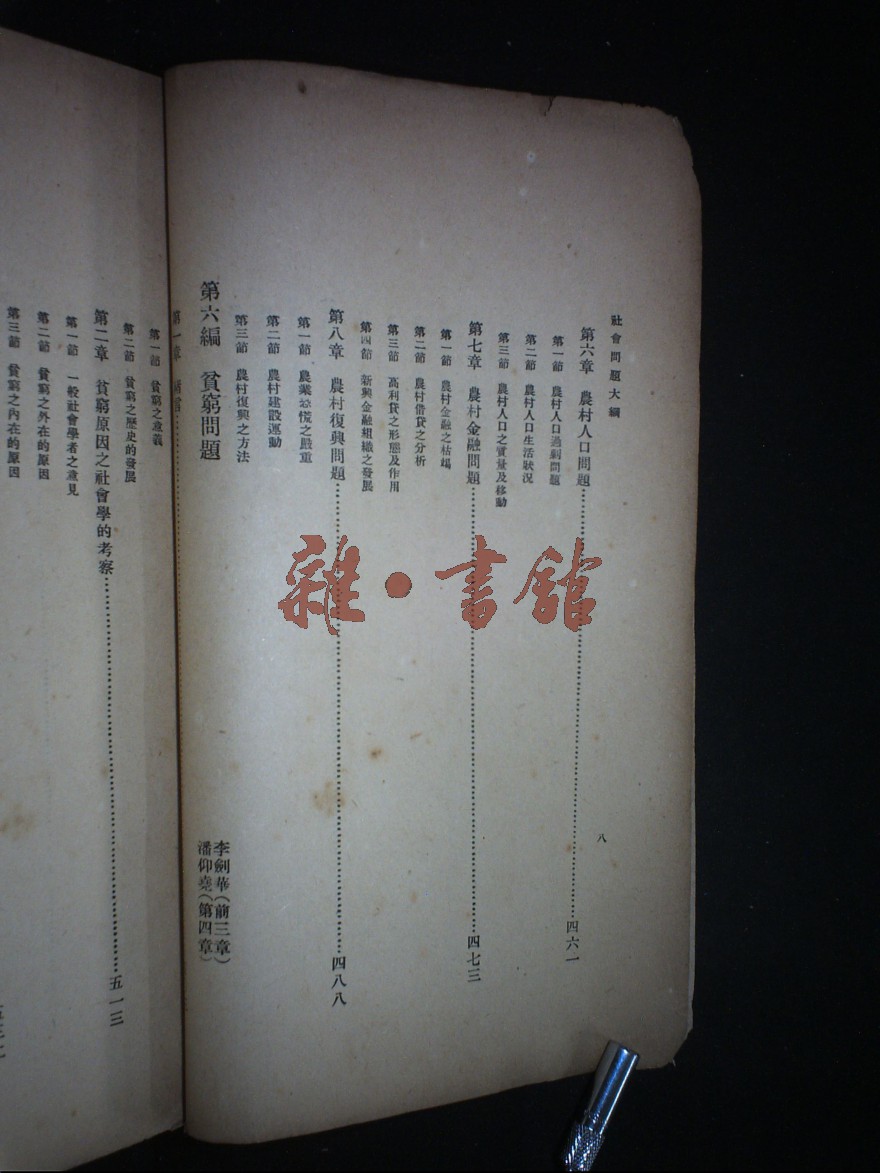 社會問題大綱
八
第六章 農村人口問題……四六一
第一節 農村人口過剩問題
第二節 農村人口生活狀況
第三節 農村人口之質量及移動
第七章 農村金融問題……四七三
第一節 農村金融之枯竭
第二節 農村借貸之分析
第三節 高利貸之形態及作用
第四節 新興金融組織之發展
第八章 農村復興問題……四八八
第一節 農業恐慌之嚴重
第二節 農村建設運動
第三節 農村復興之方法
第六編 貧窮問題
李劍華(前三章)
潘仰堯(第四章)
第一章
第一節 貧窮之意義
第二節 貧窮之歷史的發展
第二章 貧窮原因之社會學的考察……五一三
第一節 一般社會學者之意見
第二節 貧窮之外在的原因
第三節 貧窮之內在的原因
雜·書館